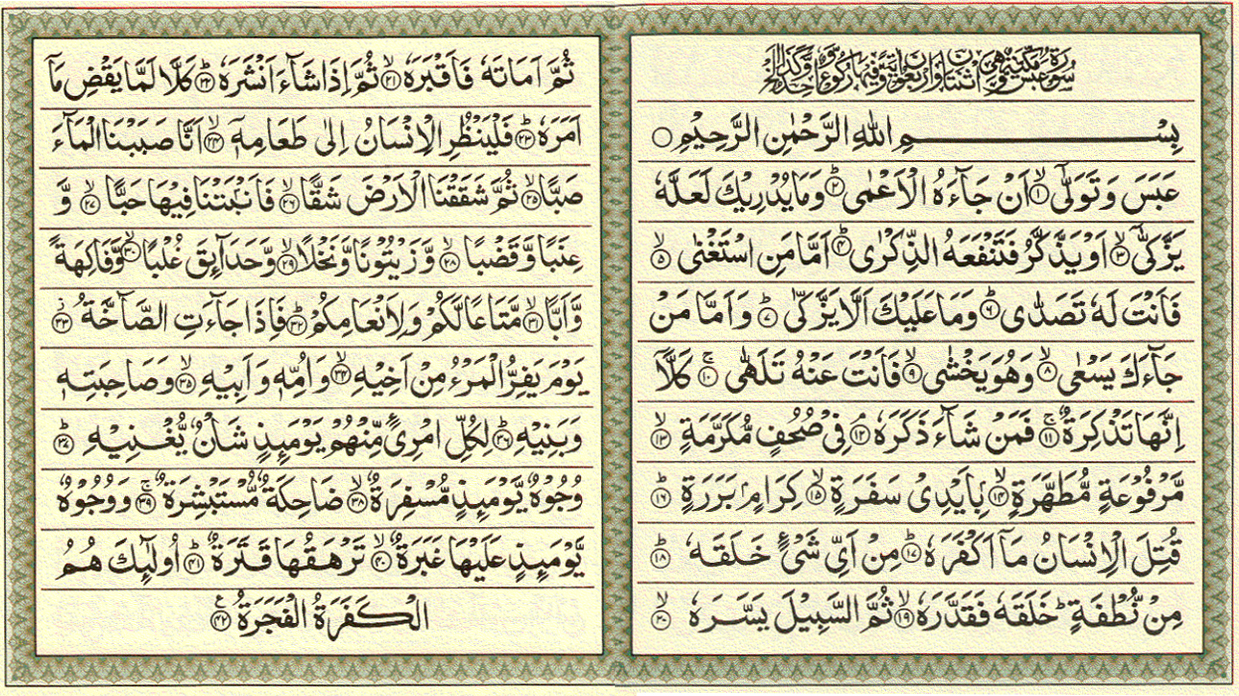 سُوْرَةُ عَبَسَ مَكِّيَّةٌ وَّهِيَ اثْنَتَانِ وَاَرْبَعُوْنَ اٰيَةً وَّفِيْهَا رُكُوْعٌ وَّاحِدٌ
بِسْمِ اللهِ الرَّحْمٰنِ الرَّحِيْمِ ○
عَبَسَ وَتَوَلّٰىٓ ۙ﴿۱﴾ اَنْ جَآءَهُ الْاَعْمٰى ؕ﴿۲﴾ وَمَا يُدْرِيْكَ لَعَلَّهٗ
يَزَّكّٰىٓ ۙ﴿۳﴾ اَوْ يَذَّكَّرُ فَتَنْفَعَهُ الذِّكْرٰى ؕ﴿۴﴾ اَمَّا مَنِ اسْتَغْنٰى ۙ﴿۵﴾
فَاَنْتَ لَهٗ تَصَدّٰى ؕ﴿۶﴾ وَمَا عَلَيْكَ اَلَّا يَزَّكّٰى ؕ﴿۷﴾ وَاَمَّا مَنْ
جَآءَكَ يَسْعٰى ۙ﴿۸﴾ وَهُوَ يَخْشٰى ۙ﴿۹﴾ فَاَنْتَ عَنْهُ تَلَهّٰى ۚ﴿۱۰﴾ كَلَّاۤ
اِنَّهَا تَذْكِرَةٌ ۚ﴿۱۱﴾ فَمَنْ شَآءَ ذَكَرَهٗ ۘ﴿۱۲﴾ فِيْ صُحُفٍ مُّكَرَّمَةٍ ۙ﴿۱۳﴾
مَّرْفُوْعَةٍ مُّطَهَّرَةٍۭ ۙ﴿۱۴﴾ بِاَيْدِيْ سَفَرَةٍ ۙ﴿۱۵﴾ كِرَامٍۭ بَرَرَةٍ ؕ﴿۱۶﴾
قُتِلَ الْاِنْسَانُ مَاۤ اَكْفَرَهٗ ؕ﴿۱۷﴾ مِنْ اَيِّ شَيْءٍ خَلَقَهٗ ؕ﴿۱۸﴾
مِنْ نُّطْفَةٍ ؕ خَلَقَهٗ فَقَدَّرَهٗ ۙ﴿۱۹﴾ ثُمَّ السَّبِيْلَ يَسَّرَهٗ ۙ﴿۲۰﴾
ثُمَّ اَمَاتَهٗ فَاَقْبَرَهٗ ۙ﴿۲۱﴾ ثُمَّ اِذَا شَآءَ اَنْشَرَهٗ ؕ﴿۲۲﴾ كَلَّا لَمَّا يَقْضِ مَاۤ
اَمَرَهٗ ؕ﴿۲۳﴾ فَلْيَنْظُرِ الْاِنْسَانُ اِلٰى طَعَامِهٖۤ ۙ﴿۲۴﴾ اَنَّا صَبَبْنَا الْمَآءَ
صَبًّا ۙ﴿۲۵﴾ ثُمَّ شَقَقْنَا الْاَرْضَ شَقًّا ۙ﴿۲۶﴾ فَاَنْۢبَتْنَا فِيْهَا حَبًّا ۙ﴿۲۷﴾ وَّ
عِنَبًا وَّقَضْبًا ۙ﴿۲۸﴾ وَّزَيْتُوْنًا وَّنَخْلًا ۙ﴿۲۹﴾ وَّحَدَآئِقَ غُلْبًا ۙ﴿۳۰﴾ وَّفَاكِهَةً
وَّاَبًّا ۙ﴿۳۱﴾ مَّتَاعًا لَّكُمْ وَلِاَنْعَامِكُمْ ؕ﴿۳۲﴾ فَاِذَا جَآءَتِ الصَّآخَّةُ ۫﴿۳۳﴾
يَوْمَ يَفِرُّ الْمَرْءُ مِنْ اَخِيْهِ ۙ﴿۳۴﴾ وَاُمِّهٖ وَاَبِيْهِ ۙ﴿۳۵﴾ وَصَاحِبَتِهٖ
وَبَنِيْهِ ؕ﴿۳۶﴾ لِكُلِّ امْرِئٍ مِّنْهُمْ يَوْمَئِذٍ شَاْنٌ يُّغْنِيْهِ ؕ﴿۳۷﴾
وُجُوْهٌ يَّوْمَئِذٍ مُّسْفِرَةٌ ۙ﴿۳۸﴾ ضَاحِكَةٌ مُّسْتَبْشِرَةٌ ۚ﴿۳۹﴾ وَوُجُوْهٌ
يَّوْمَئِذٍ عَلَيْهَا غَبَرَةٌ ۙ﴿۴۰﴾ تَرْهَقُهَا قَتَرَةٌ ؕ﴿۴۱﴾ اُولٰٓئِكَ هُمُ
الْكَفَرَةُ الْفَجَرَةُ ﴿۴۲﴾